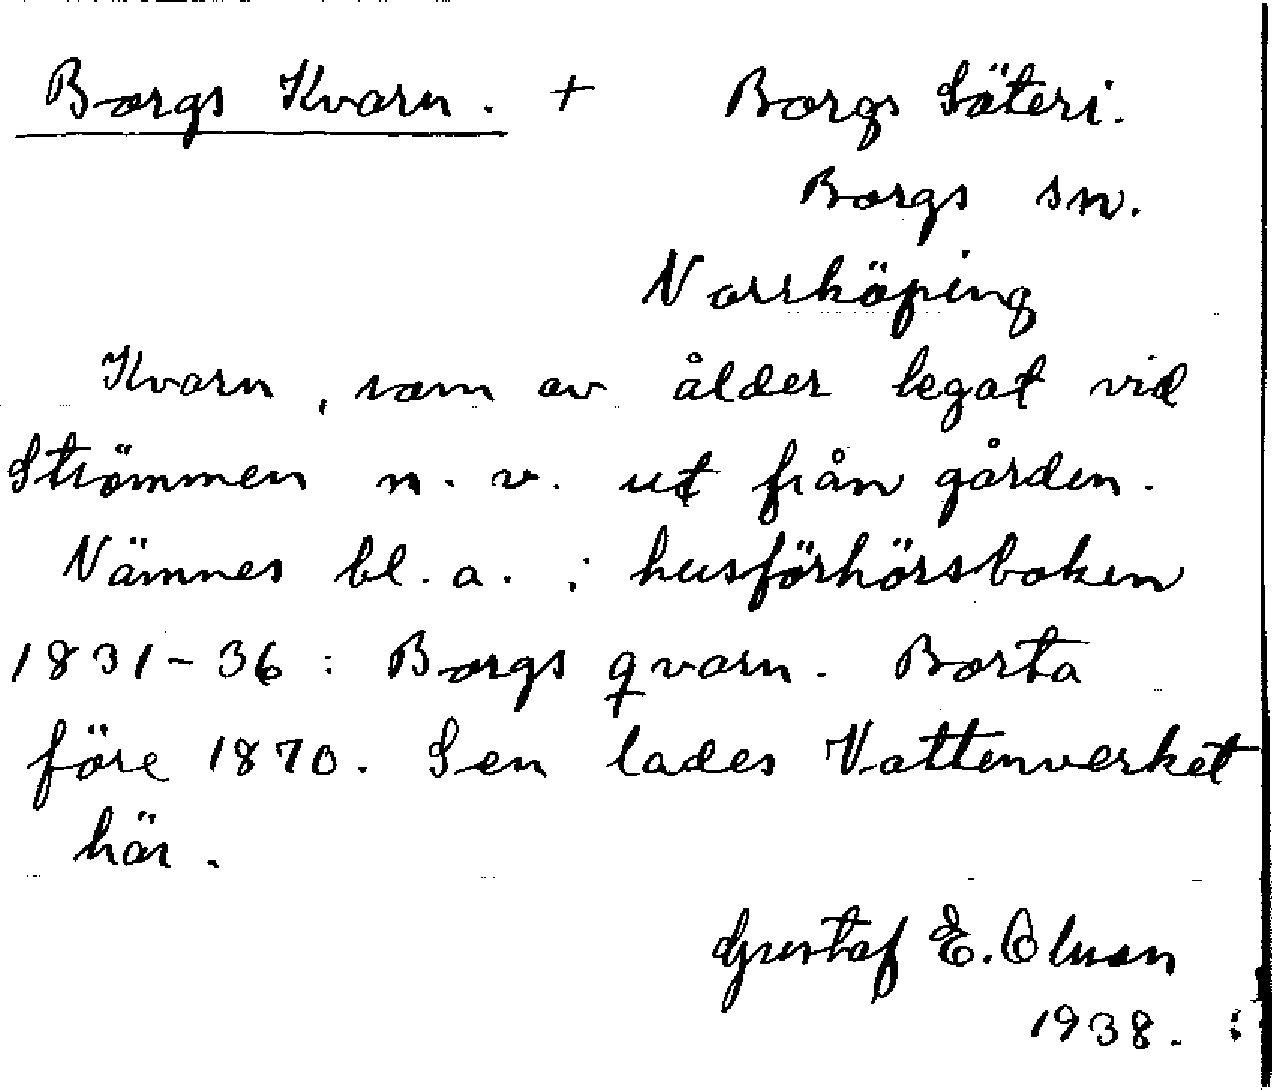 Borgs Kvarn. + Borgs Säteri.
Borgs sn.
Norrköping
Kvarn, som av ålder legat vid
Strömmen n. v. ut från gården.
Nämnes bl. a. i husförhörsboken
1831-36: Borgs qvarn. Borta
före 1870. Sen lades Vattenverket
här.
Gustaf E. Olsson
1938.